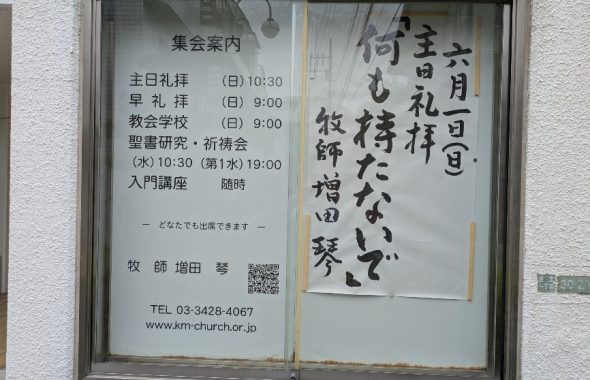 集会案内
主日礼拝 (日) 10:30
早礼拝 (日) 9:00
教会学校 (日) 9:00
聖書研究・祈祷会
(水) 10:30 (第1水) 19:00
入門講座 随時
― どなたでも出席できます ―
牧師 増田 琴
TEL 03-3428-4067
www.km-church.or.jp
六月一日(日)
主日礼拝
「何も持たないで」
牧師 増田琴